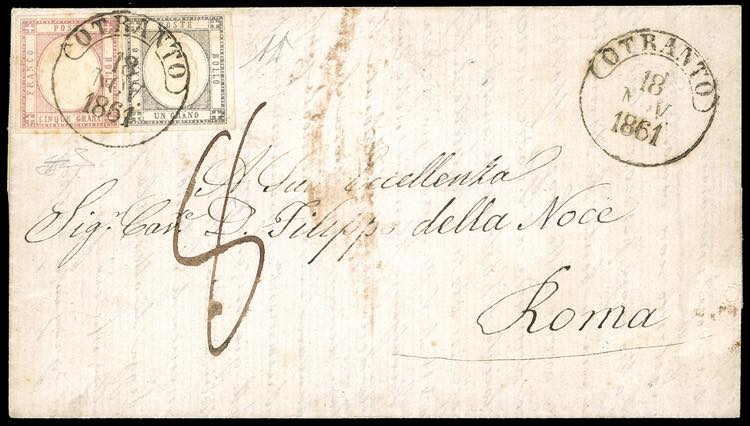 FRANCO POSTE BOLLO
CINQUE GRANA
FRANCO POSTE BOLLO
UN GRANO
OTRANTO
18
NOV
1861
OTRANTO
18
NOV
1861
A Sua Eccellenza
Sigr. Cav. D. Filippo della Noce
Roma